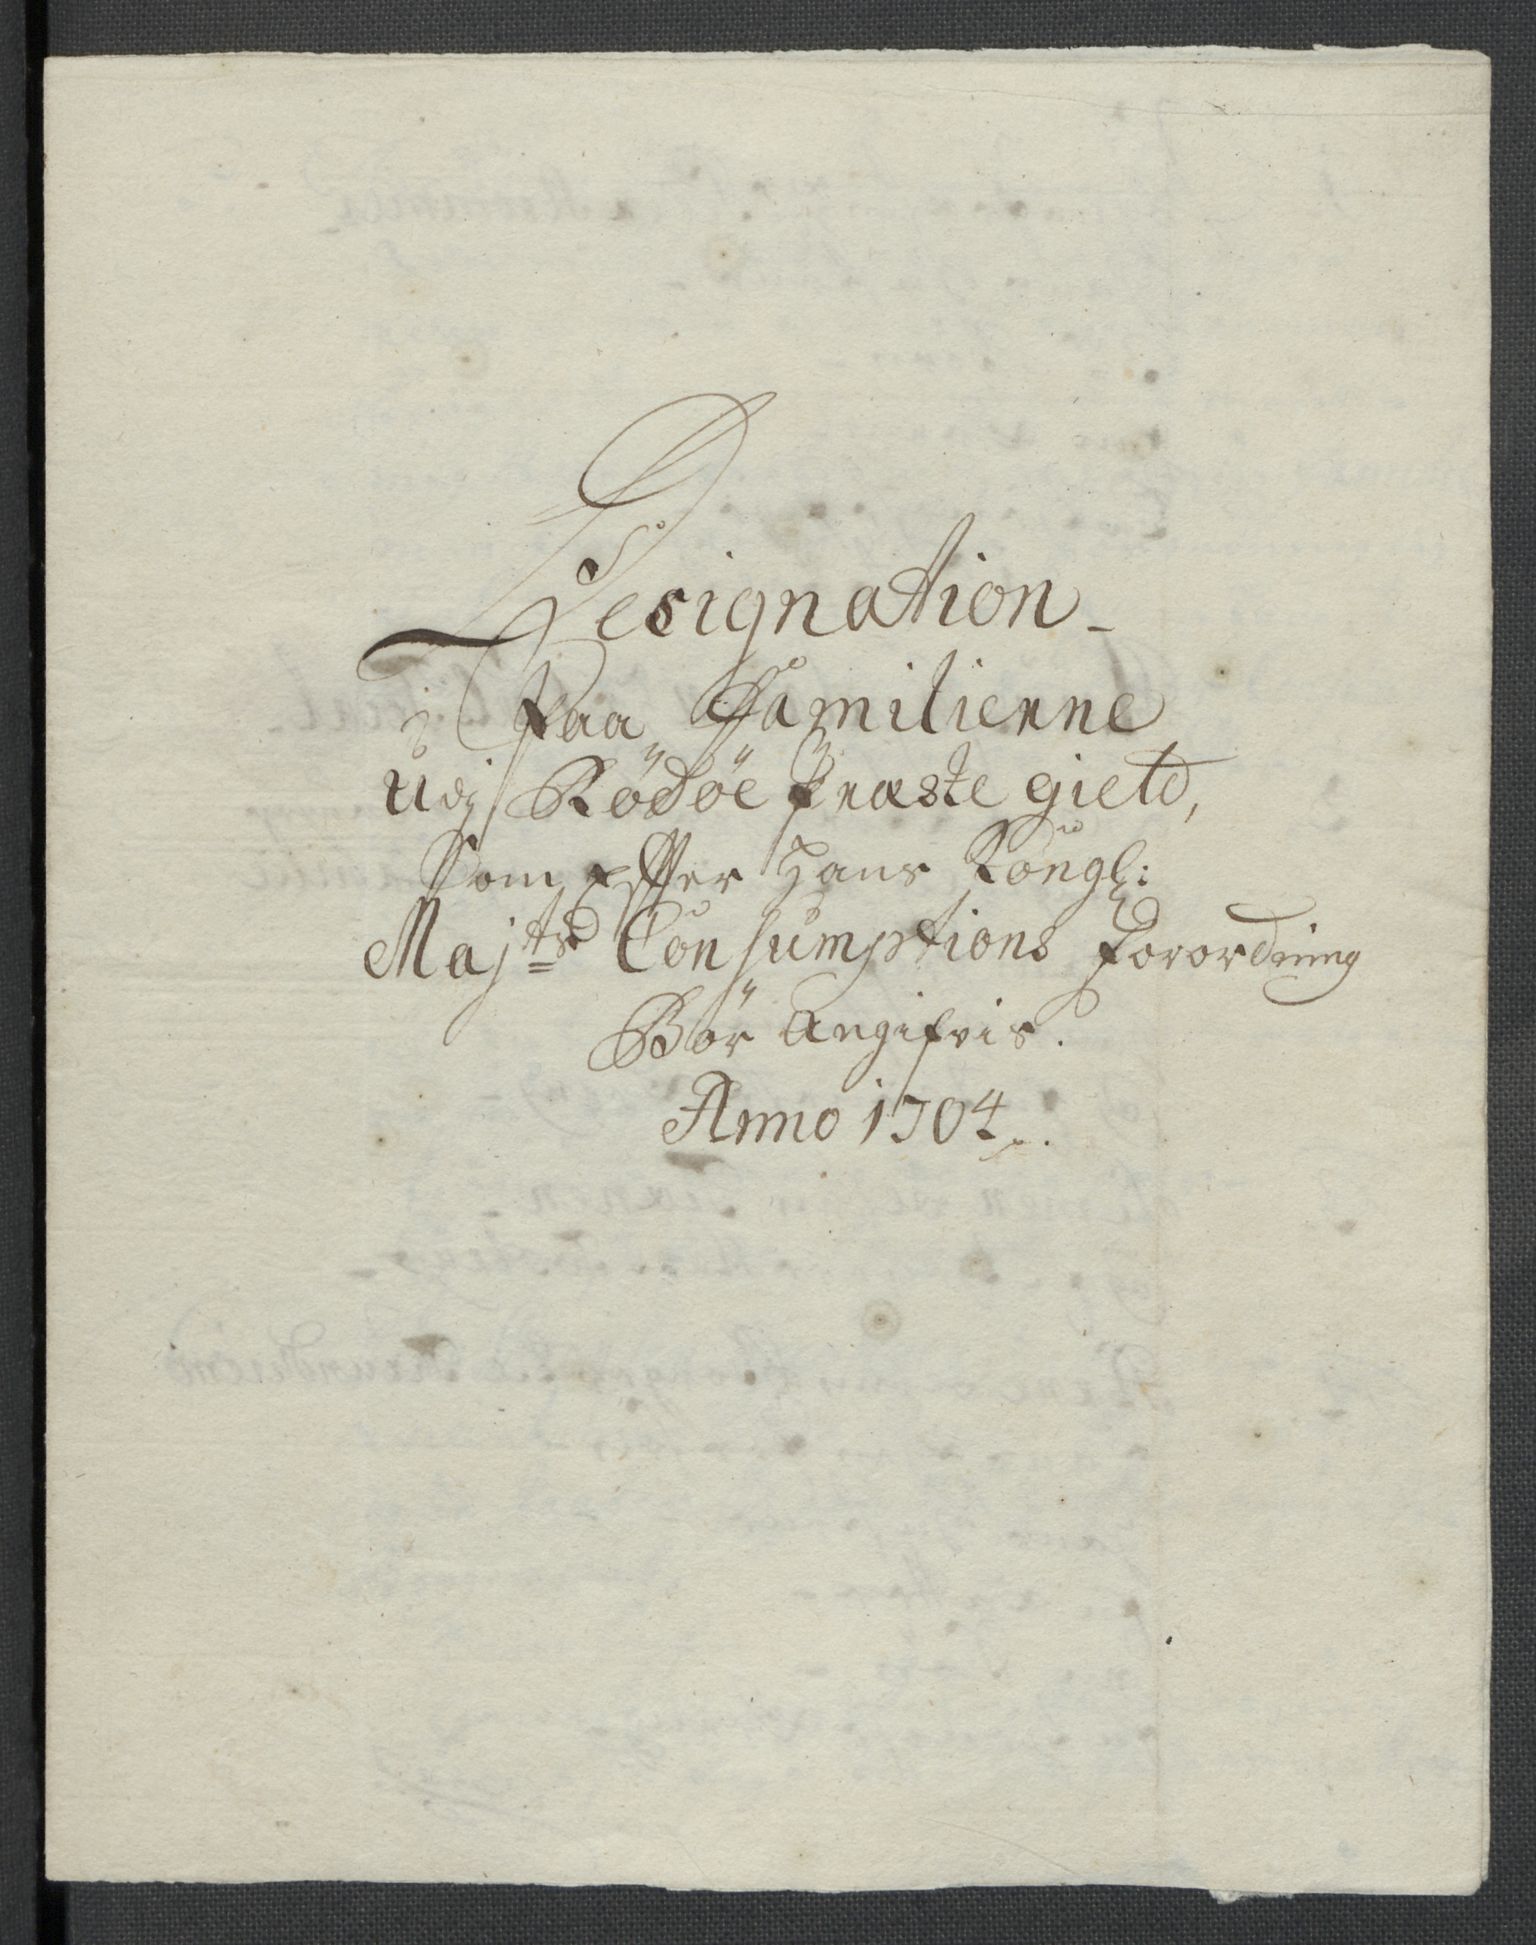 Designation
Paa Familienne
udj Rödöe Præste gield,
Som Effter Hans Kongl:
Majts Consumptions Forordning
Bör Angifvis.
Anno 1704